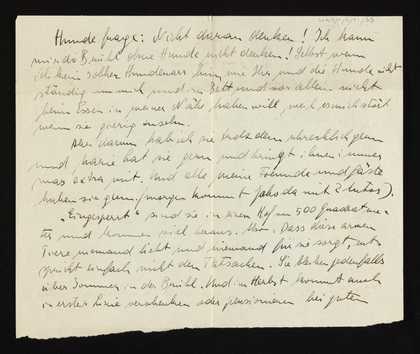 Hundefrage: Nicht daran denken! Ich kann
mir die Brühl ohne Hunde nicht denken! Selbst wenn
ich kein solcher Hundenarr bin, wie Ihr, und die Hunde nicht
ständig um mich und im Bett und vor allem nicht
beim Essen in meiner Nähe haben will, weil es mich stört
wenn sie gierig zusehn.
Aber darum hab ich sie trotzdem schrecklich gern
und Marie hat sie gern und bringt ihnen immer
was extra mit. Und alle meine Freunde und Gäste
haben sie gern. (morgen kommt mit 2 Autos).
"Eingesperrt" sind sie in einem Hof von 500 Quadratme-
ter und kommen viel heraus. Also: Dass diese armen
Tiere niemand liebt und niemand für sie sorgt, ent-
spricht einfach nicht den Tatsachen. Sie bleiben jedenfalls
über Sommer in der Brühl. Und im Herbst kommt auch
in erster Linie verschenken oder pensionieren bei guten